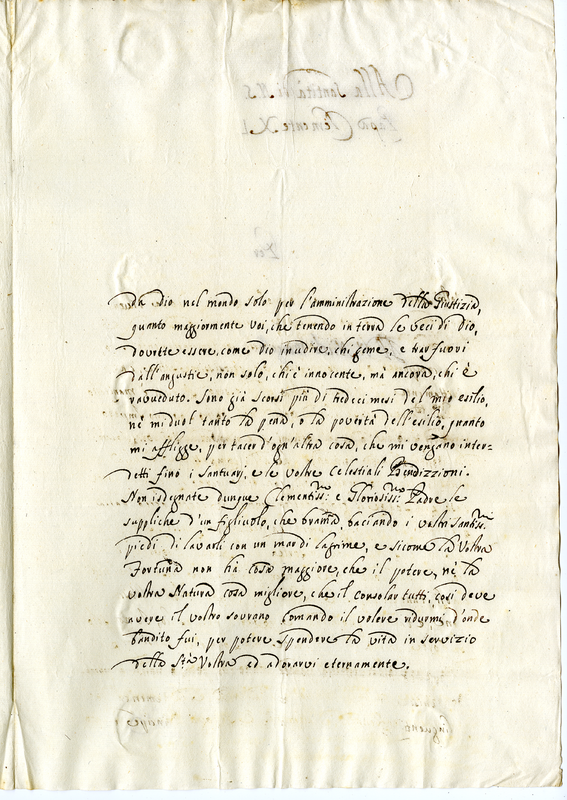 Alla Santità di N. S.
Papa Clemente XI
Per
da Dio nel mondo solo per l'amministrazione della Giustizia,
quanto maggiormente voi, che tenendo in terra le veci di Dio,
dovette essere, come Dio in udire, chi geme, e trar fuori
dall'angustie, non solo, chi è innocente, mà ancora, chi è
ravveduto. Sono già scorsi più di tredeci mesi del mio esilio,
nè mi duol tanto la pena, o la povertà dell'esilio, quanto
mi affligge, per tacer d'ogn'altra cosa, che mi vengano inter=
detti fino i Santuarj, e le vostre Celestiali Benedizzioni.
Non isdegnate dunque Clementiss:mo e Gloriosiss:mo Padre le
suppliche d'un figliuolo, che brama, baciando i vostri Santiss:mi
piedi di lavarli con un mar di lagrime, e sicome la Vostra
Fortuna non hà cosa maggiore, che il potere, nè la
vostra Natura cosa migliore, che il consolar tutti, così deve
avere il vostro sovrano Comando il volere ridurmi, d'onde
bandito fui, per potere spendere la vita in servizio
della S.tà Vostra ed adorarvi eternamente.